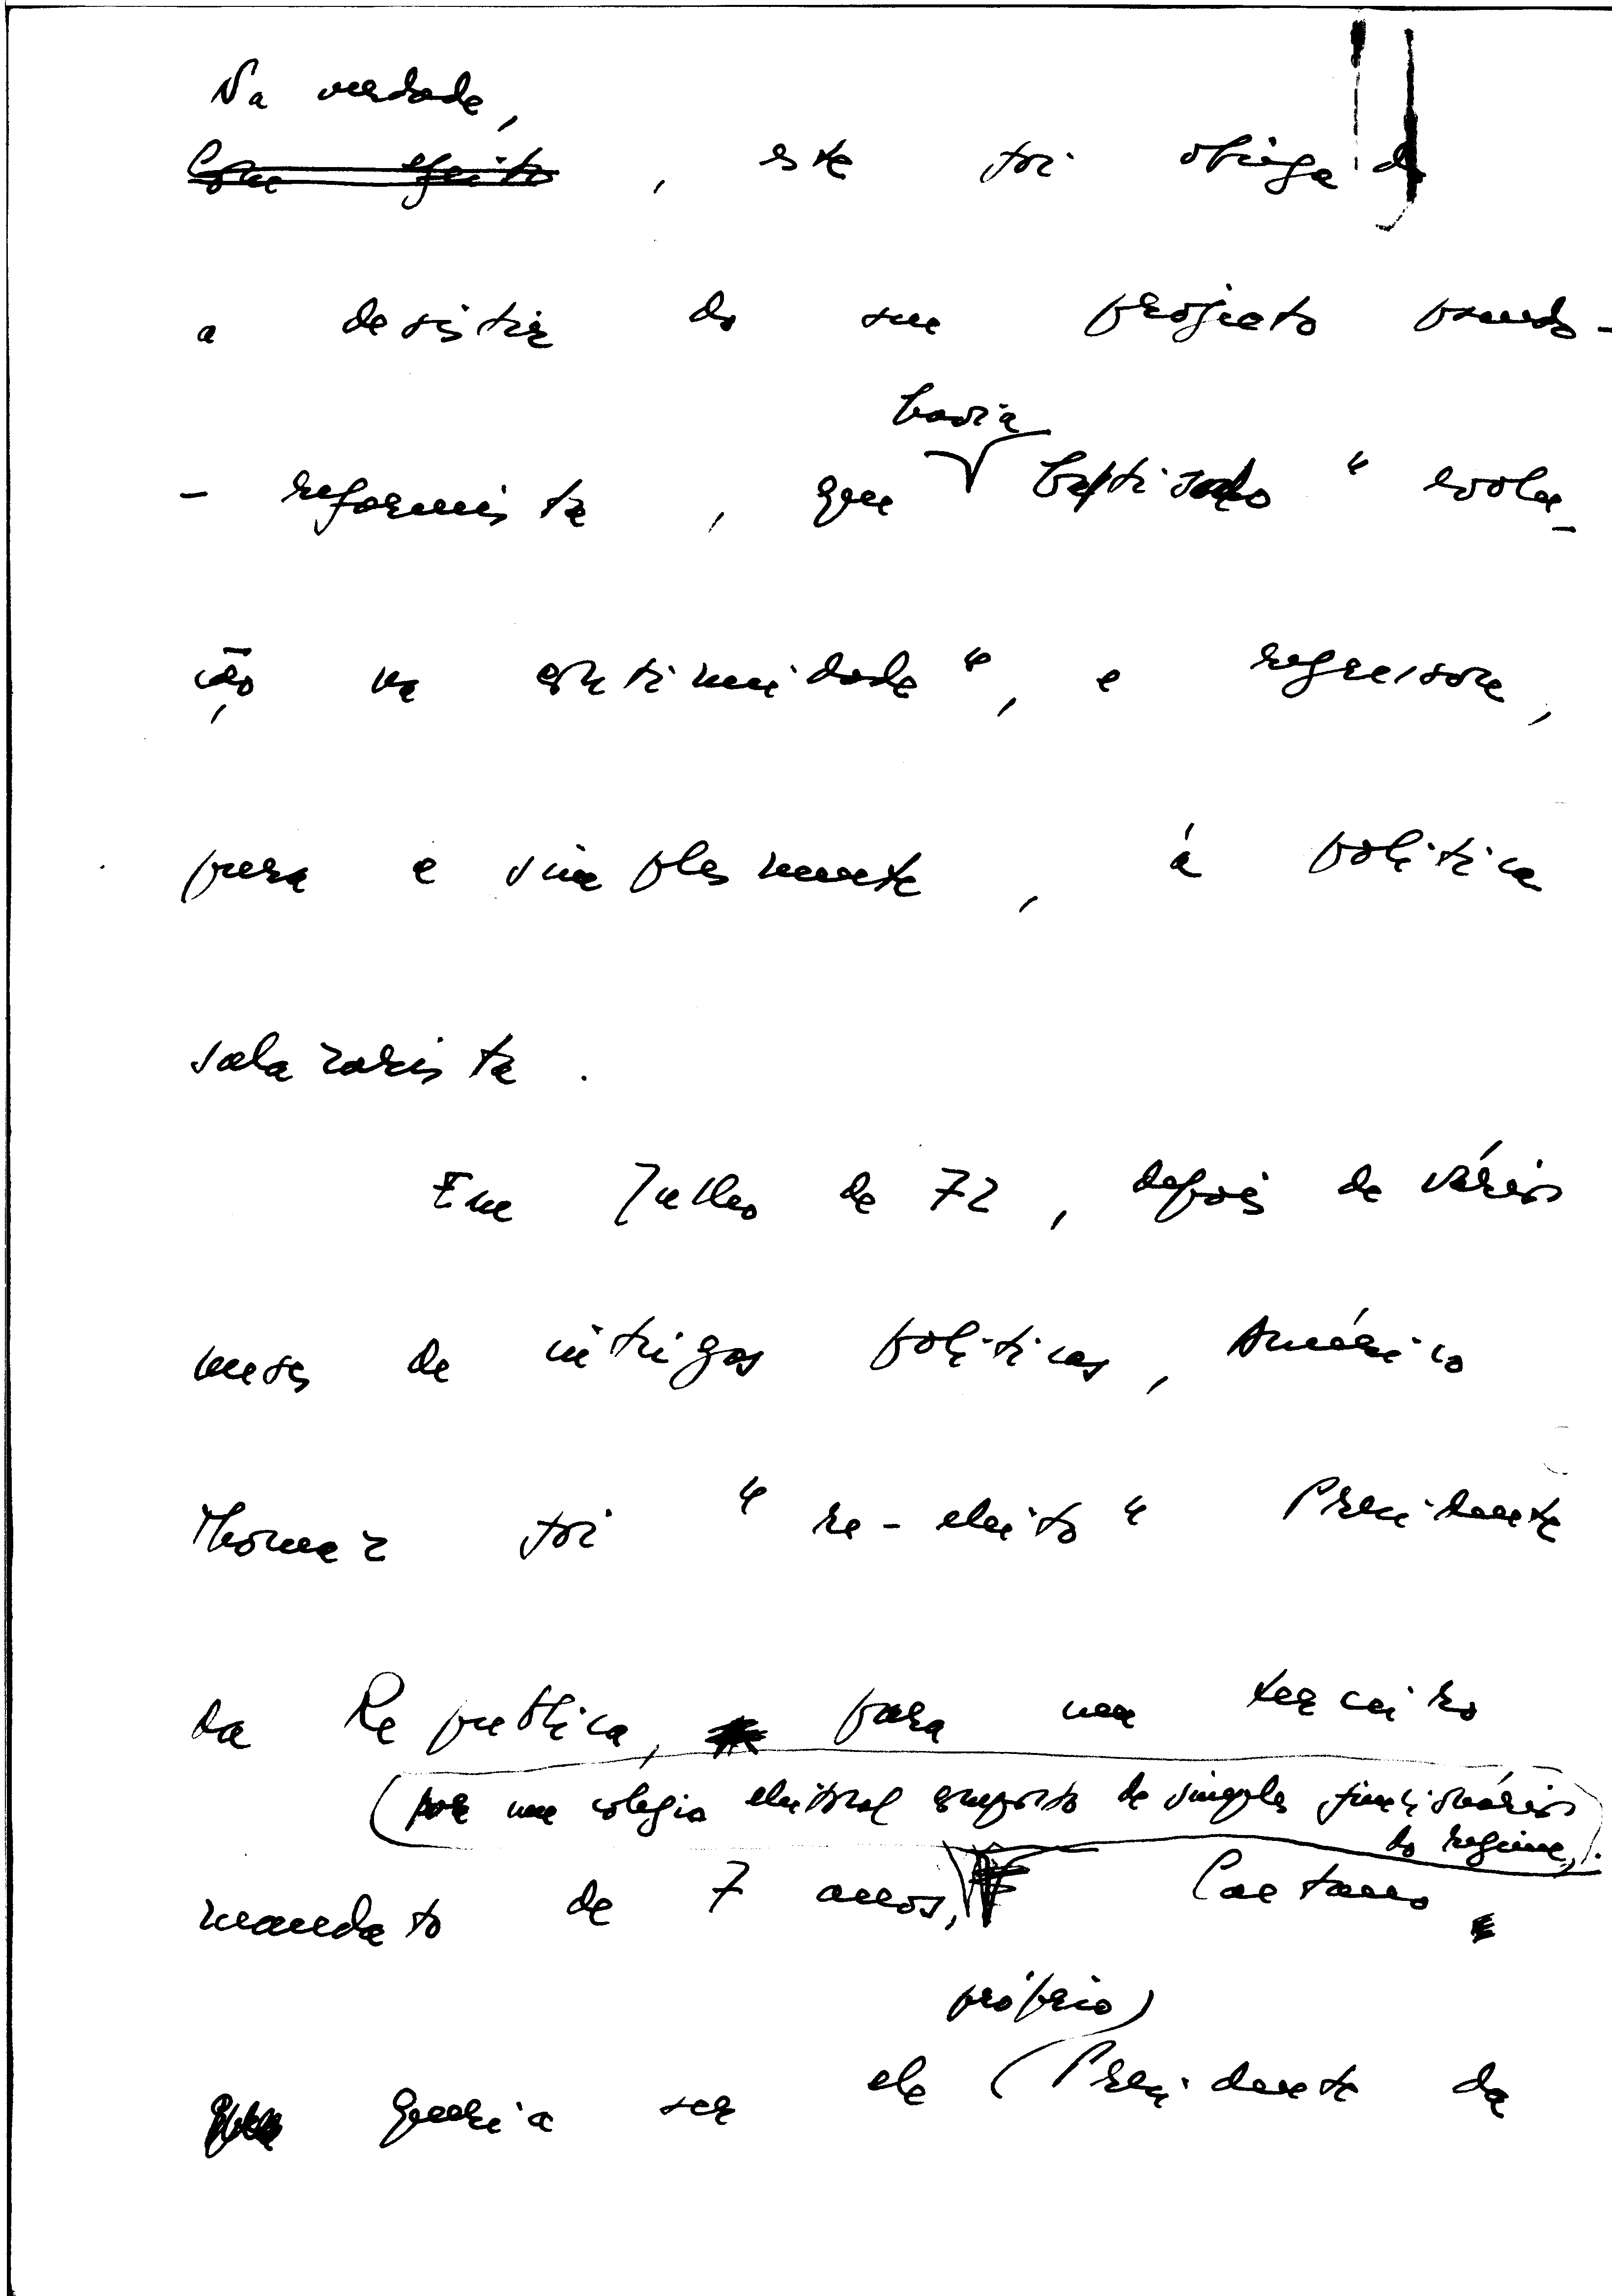 Na verdade,
Com efeito, este foi obrigado
a desistir do seu projecto pseudo-
havia
- reformista, que baptisado "evolu-
ção na continuidade", e regressou,
pura e simplesmente, à política
salazarista.
Em Julho de 72, depois de vários
meses de intrigas políticas, Américo
Thomaz foi "re-eleito" Presidente
da República, para um terceiro
(por um colégio eleitoral composto de simples funcionários
do regime,).
mandato de 7 anos, Caetano
próprio)
queria ser ele (Presidente da